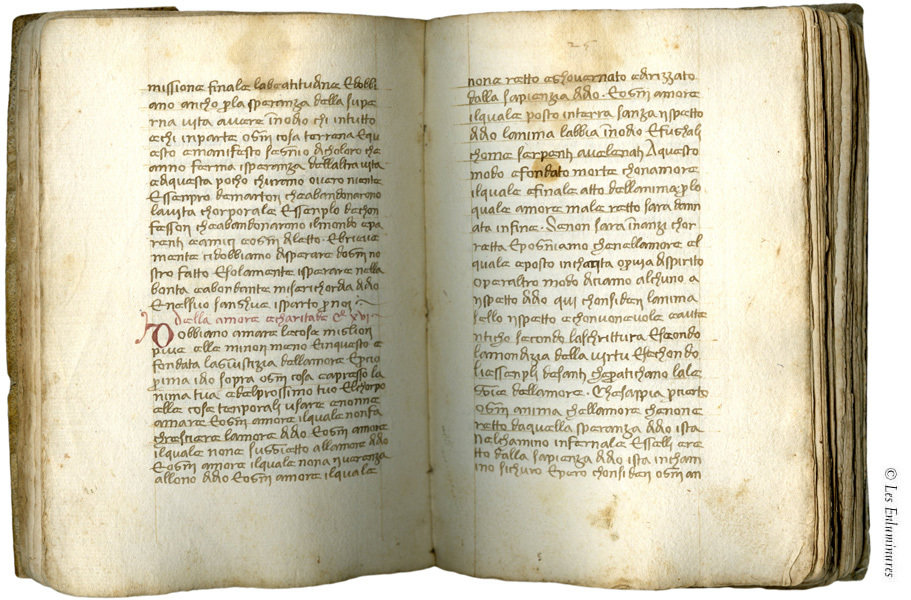 missione finale la beatitudine E dobbi
ano ancho p la speranza della supe
rna vita avere inodio chi intutto
e chi inparte ogni cosa terrena E qu
esto e manifesto segnio di choloro che
anno ferma isperanza dellaltra vita
E di questa pocho churano overo niente
Essenpro de martori che abandonarono
la vita chorporale Essenplo de chon
fessori che abandonarono il mondo e pa
renti e amici e ogni diletto · E brieve
mente ti dobbiamo disperare dogni no
stro fatto E solamente isperare nella
bonta e abondante misericordia di dio
E nel suo sanghue isparto p noi
della amore e charitade Co xvi
Dobbiamo amare le cose migliori
piu e elle minori meno E in questo e
fondata la giustizia dellamore E pero
prima idio sopra ogni cosa e apresso la
nima tua e del prossimo tuo E l chorpo
e lle cose tenporali usare e nonne
amare E ogni amore il quale non fa
chresciere lamore di dio E ogni amore
il quale none suggietto all amore di dio
E ogni amore il quale nona riverenza
allono di dio E ogni amore il quale
25
none retto e ghovernato e dirizzato
dalla sapienza di dio · E ogni amore
il quale posto in terra sanza rispetto
di dio lanima labbia inodio E fughali
chome serpenti avelenati A questo
modo e fondato morte chonamore
il quale e finale atto dellanima p lo
quale amore male retto sara dann
ata in fine · Se non sara inanzi chor
retta E pogniamo che nell amore el
quale e posto in chatita o piu a dispirito
o per altro modo diciamo alchuno a
rispetto di dio qui chonsideri lanima
sello rispetto e chonvenevole e aute
nticho secondo la schrittura E secondo
la mondizia della virtu E sechondo
li essenpli de santi che patichano la le
gie dellamore · Che sappia p cierto
ogni anima che llamore che none
retto da quella speranza di dio ista
nel chamino infernale E sselli e re
tto dalla sapienza di dio ista in cham
ino sichuro E pero chonsideri ogni an
© Les Enluminures